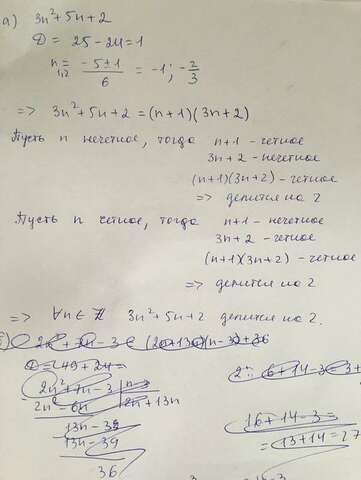 а) 3n²+5n+2
D = 25-24=1
n₁,₂ = (-5±1)/6 = -1; -2/3
=> 3n²+5n+2 = (n+1)(3n+2)
Пусть n нечетное, тогда n+1 - четное
3n+2 - нечетное
(n+1)(3n+2) - четное
=> делится на 2
Пусть n четное, тогда n+1 - нечетное
3n+2 - четное
(n+1)(3n+2) - четное
=> делится на 2
=> ∀n∈ℤ 3n²+5n+2 делится на 2.
D = 49+24=
2n²+7n-3 | n-3
2n²-6n | 2n+13n
13n-3
13n-39
36
16+14-3=
=13+14=27